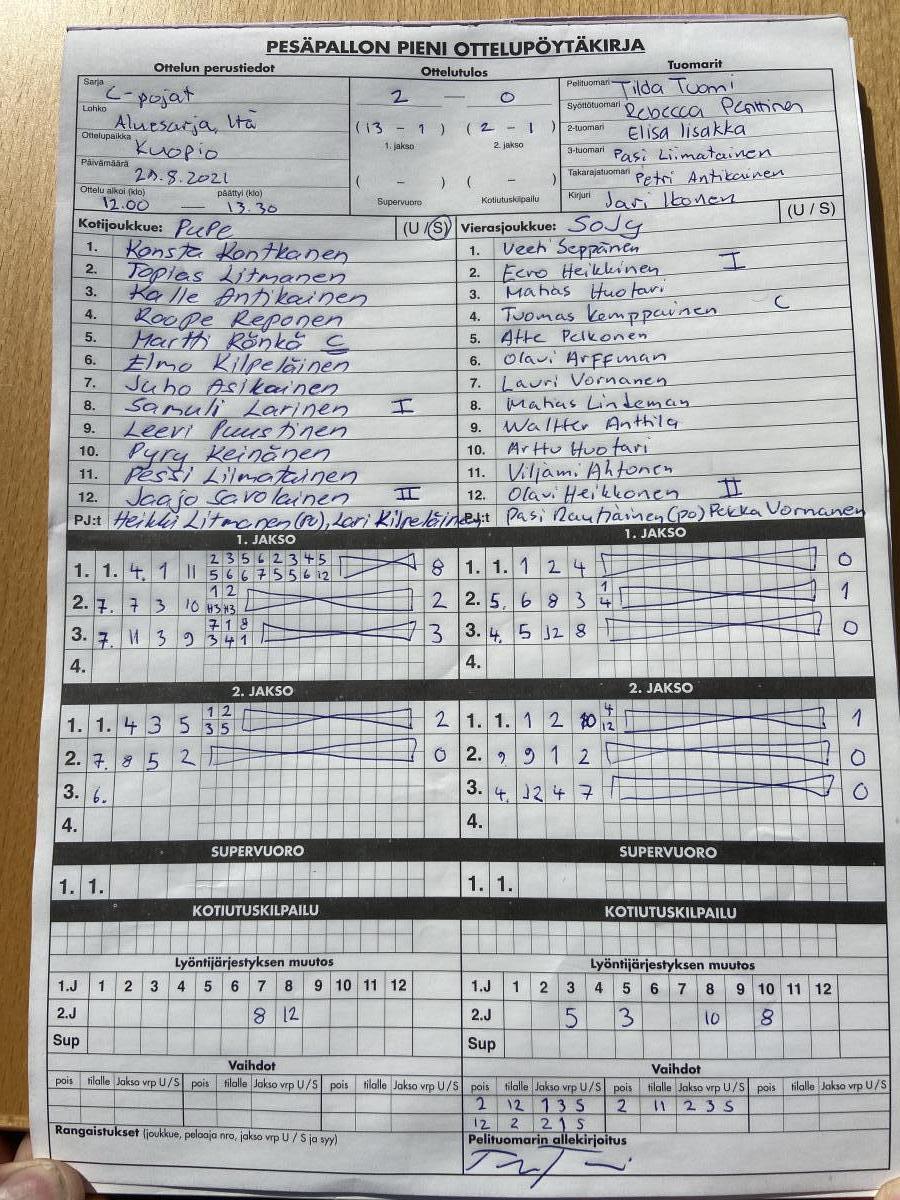 PESÄPALLON PIENI OTTELUPÖYTÄKIRJA
Ottelun perustiedot Ottelutulos Tuomarit
Sarja C-pojat
Lohko Aluesarja, Itä
Ottelupaikka Kuopio
Päivämäärä .8.2021
Ottelu alkoi (klo) päättyi (klo)
12.00 — 13.30
2 — 0
(13 - 1) (2 - 1)
1. jakso 2. jakso
( - ) ( - )
Supervuoro Kotiutuskilpailu
Pelituomari Tilda Tuomi
Syöttötuomari Rebecca Penttinen
2-tuomari Elisa Iisakka
3-tuomari Pasi Liimatainen
Takarajatuomari Petri Antikainen
Kirjuri Jari Ikonen
Kotijoukkue: PuPe (U / S)
1. Konsta Kontkanen
2. Topias Litmanen
3. Kalle Antikainen
4. Roope Reponen
5. Martti Rönkö C
6. Elmo Kilpeläinen
7. Juho Asikainen
8. Samuli Larinen I
9. Leevi Puustinen
10. Pyry Keinänen
11. Pessi Liimatainen
12. Jaajo Savolainen II
PJ:t Heikki Litmanen (PJ), Lari Kilpeläinen
Vierasjoukkue: SoJy (U / S)
1. Veeti Seppänen
2. Eero Heikkinen I
3. Matias Huotari
4. Tuomas Kemppainen C
5. Atte Pelkonen
6. Olavi Arffman
7. Lauri Vornanen
8. Matias Lindeman
9. Waltter Anttila
10. Arttu Huotari
11. Viljami Ahtonen
12. Olavi Heikkonen II
PJ:t Pasi Rautiainen (PJ) Pekka Vornanen
1. JAKSO
1. 1. 4 1 11 2 3 5 6 2 3 4 5 8
5 6 6 7 5 5 6 12
2. 7. 7 3 10 1 2 2
H3 H3
3. 7. 11 3 9 7 1 8 3
3 4 1
4.
1. JAKSO
1. 1. 1 2 4 0
2. 5. 6 8 3 1 1
4
3. 4. 5 12 8 0
4.
2. JAKSO
1. 1. 4 3 5 1 2 2
3 5
2. 7. 8 5 2 0
3. 6.
4.
2. JAKSO
1. 1. 1 2 10 4 1
12
2. 9. 9 1 2 0
3. 4. 12 4 7 0
4.
SUPERVUORO SUPERVUORO
1. 1. 1. 1.
KOTIUTUSKILPAILU KOTIUTUSKILPAILU
Lyöntijärjestyksen muutos
1.J 1 2 3 4 5 6 7 8 9 10 11 12
2.J 8 12
Sup
Lyöntijärjestyksen muutos
1.J 1 2 3 4 5 6 7 8 9 10 11 12
2.J 5 3 10 8
Sup
Vaihdot
pois tilalle Jakso vrp U / S pois tilalle Jakso vrp U / S pois tilalle Jakso vrp U / S
Vaihdot
pois tilalle Jakso vrp U / S pois tilalle Jakso vrp U / S pois tilalle Jakso vrp U / S
2 12 1 3 S 2 11 2 3 S
12 2 2 1 S
Rangaistukset (joukkue, pelaaja nro, jakso vrp U / S ja syy)
Pelituomarin allekirjoitus